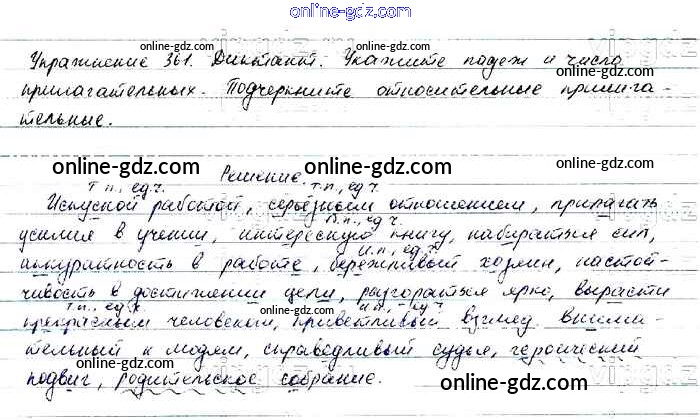 online-gdz.com
Упражнение 361. Диктант. Укажите падеж и число
online-gdz.com online-gdz.com
прилагательных. Подчеркните относительные прилага-
тельные.
online-gdz.com Решение. online-gdz.com
т.п., ед.ч. т.п., ед.ч.
Искусной работой, серьёзным отношением, прилагать
В.п., ед.ч.
усилия в учении, интересную книгу, набираться сил,
И.п., ед.ч.
аккуратность в работе, бережливый хозяин, настой-
чивость в достижении цели, разгораться ярко, вырасти
т.п., ед.ч. И.п., ед.ч.
прекрасным человеком, приветливый взгляд внима-
online-gdz.com
тельный к людям, справедливый судья, героический
подвиг, родительское собрание.
online-gdz.com online-gdz.com